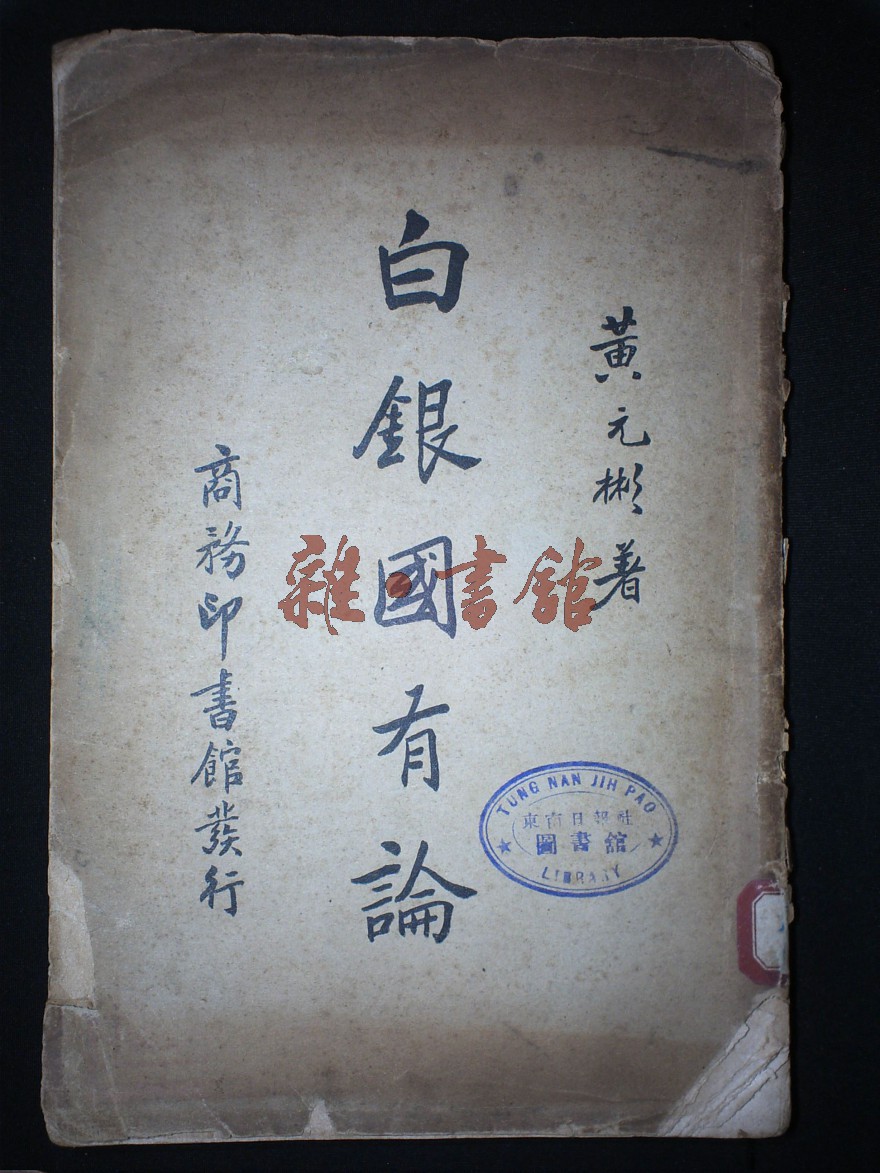 黃元彬著
白銀國有論
商務印書館發行
雜·書館
TUNG NAN JIH PAO
東南日報社
圖書館
LIBRARY